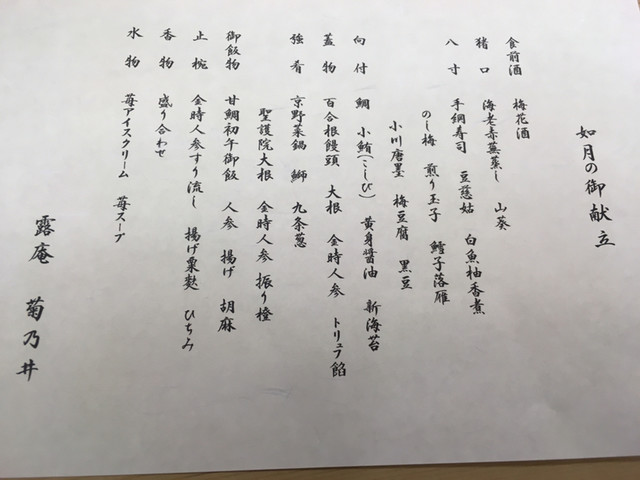 如月の御献立
食前酒　梅花酒
猪口　海老赤蕪蒸し　山葵
八寸　手綱寿司　豆慈姑　白魚柚香煮
のし梅　煎り玉子　鱈子落雁
小川唐墨　梅豆腐　黒豆
向付　鯛　小鮪(こしび)　黄身醤油　新海苔
蓋物　百合根饅頭　大根　金時人参　トリュフ餡
強肴　京野菜鍋　鰤　九条葱
聖護院大根　金時人参　振り橙
御飯物　甘鯛初午御飯　人参　揚げ　胡麻
止椀　金時人参すり流し　揚げ粟麩　ひちみ
香物　盛り合わせ
水物　苺アイスクリーム　苺スープ
露庵　菊乃井